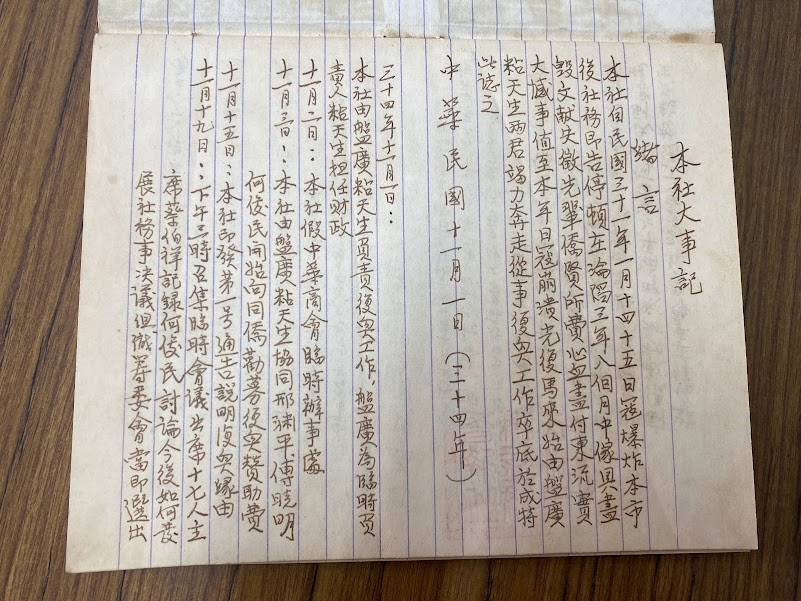 本社大事記
緒言
本社自民國三十一年一月十四十五日冦爆炸本市
後社務即告停頓在淪陷三年八個月中傢具盡
毀文献失徵先輩僑賢所費心血盡付東流實
大憾事值至本年日寇崩潰光復馬來始由盤廣
粘天生两君竭力奔走從事復興工作卒底於成特
此誌之
中華民國十一月一日(三十四年)
三十四年十一月一日:
本社由盤廣粘天生負責復興工作,盤廣為臨時負
責人粘天生担任財政
十一月二日:本社假中華商會臨時辦事處
十一月三日:本社由盤廣粘天生協同邢渊平傅曉明
何俊民開始向同僑勸募復興賛助費
十一月十五日:本社印發第一号通告説明復興緣由
十一月十九日:下午三時召集臨時會議出席十七人主
席蔡伯祥記録何俊民討論今後如何發
展社務事决議组織籌委會當即選出